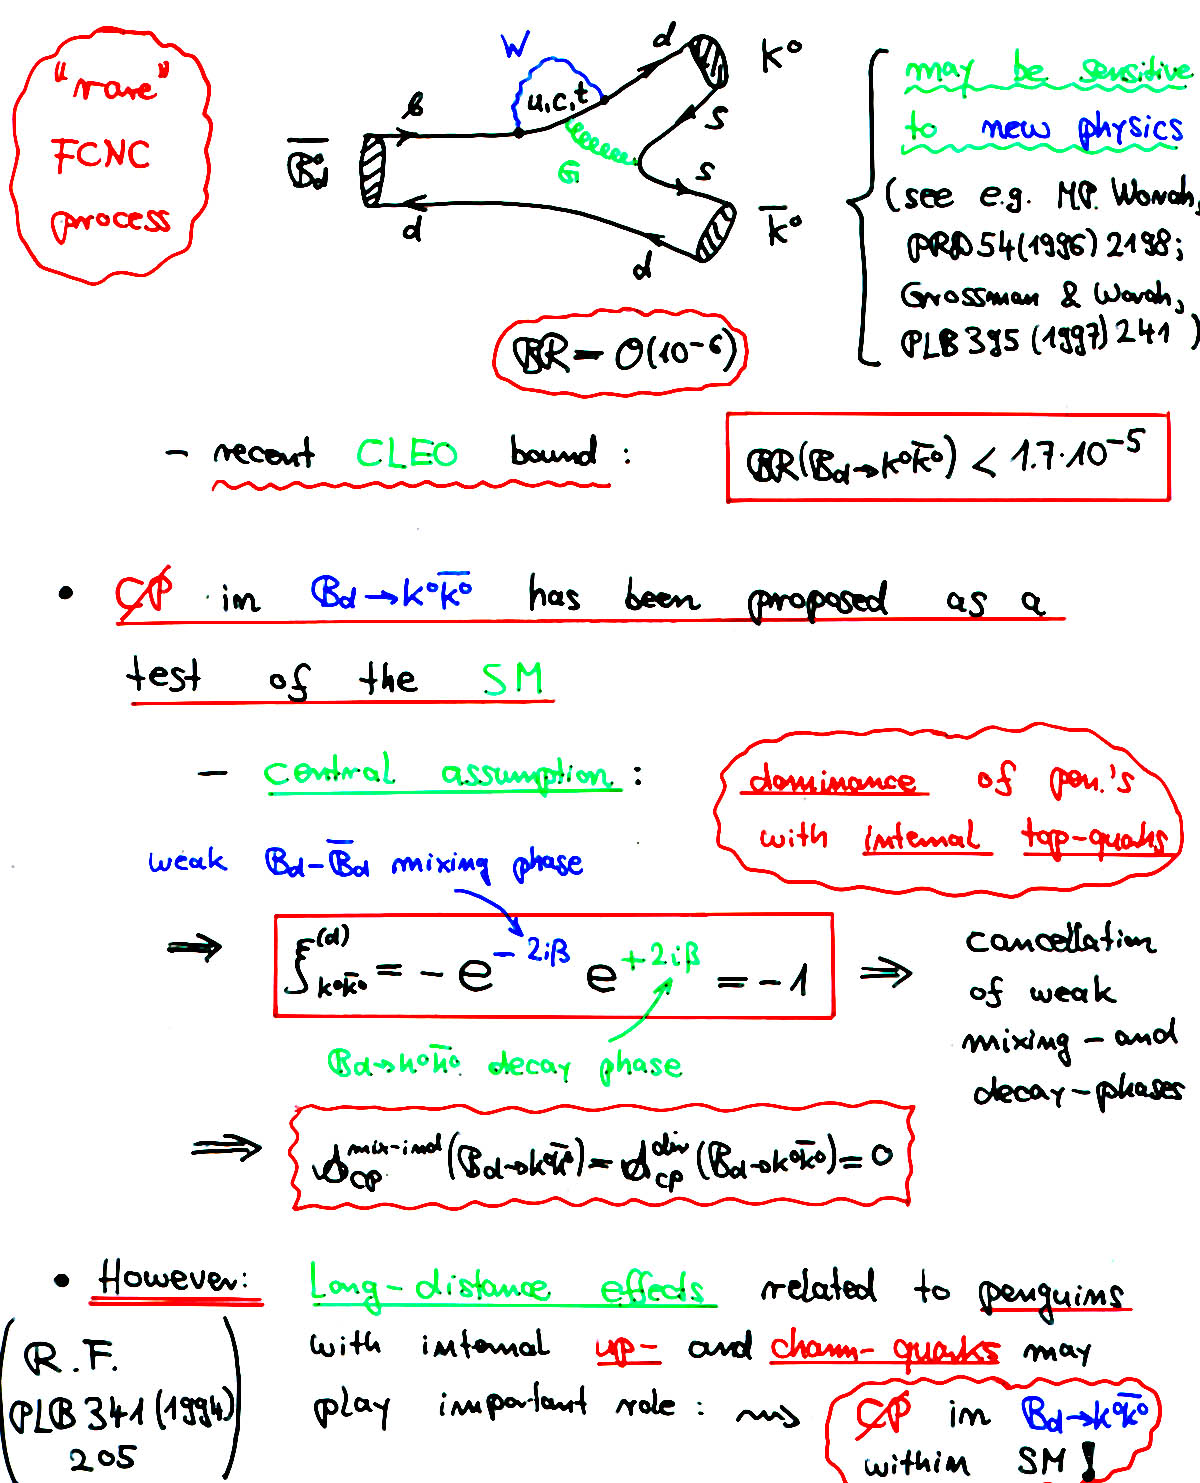 "rare"
FCNC
process
W
u,c,t
b
d
K⁰
s
G
s
B̄⁰d
d
d
K̄⁰
may be sensitive
to new physics
(see e.g. M.P. Worah,
PRD54(1996)2198;
Grossman & Worah,
PLB395(1997)241)
BR = O(10⁻⁶)
- recent CLEO bound: BR(Bd→K⁰K̄⁰) < 1.7·10⁻⁵
• C̸P̸ in Bd→K⁰K̄⁰ has been proposed as a
test of the SM
- central assumption: dominance of pen.'s
with internal top-quarks
weak Bd-B̄d mixing phase
⇒ ξ^(d)_{K⁰K̄⁰} = - e^{-2iβ} e^{+2iβ} = -1 ⇒ cancellation
of weak
mixing-and
decay-phases
Bd→K⁰K̄⁰ decay phase
⇒ A_CP^{mix-ind}(Bd→K⁰K̄⁰) = A_CP^{dir}(Bd→K⁰K̄⁰) = 0
• However: Long-distance effects related to penguins
with internal up- and charm-quarks may
play important role: ⇝ C̸P̸ in Bd→K⁰K̄⁰
within SM!
(R.F.
PLB341(1994)
205)